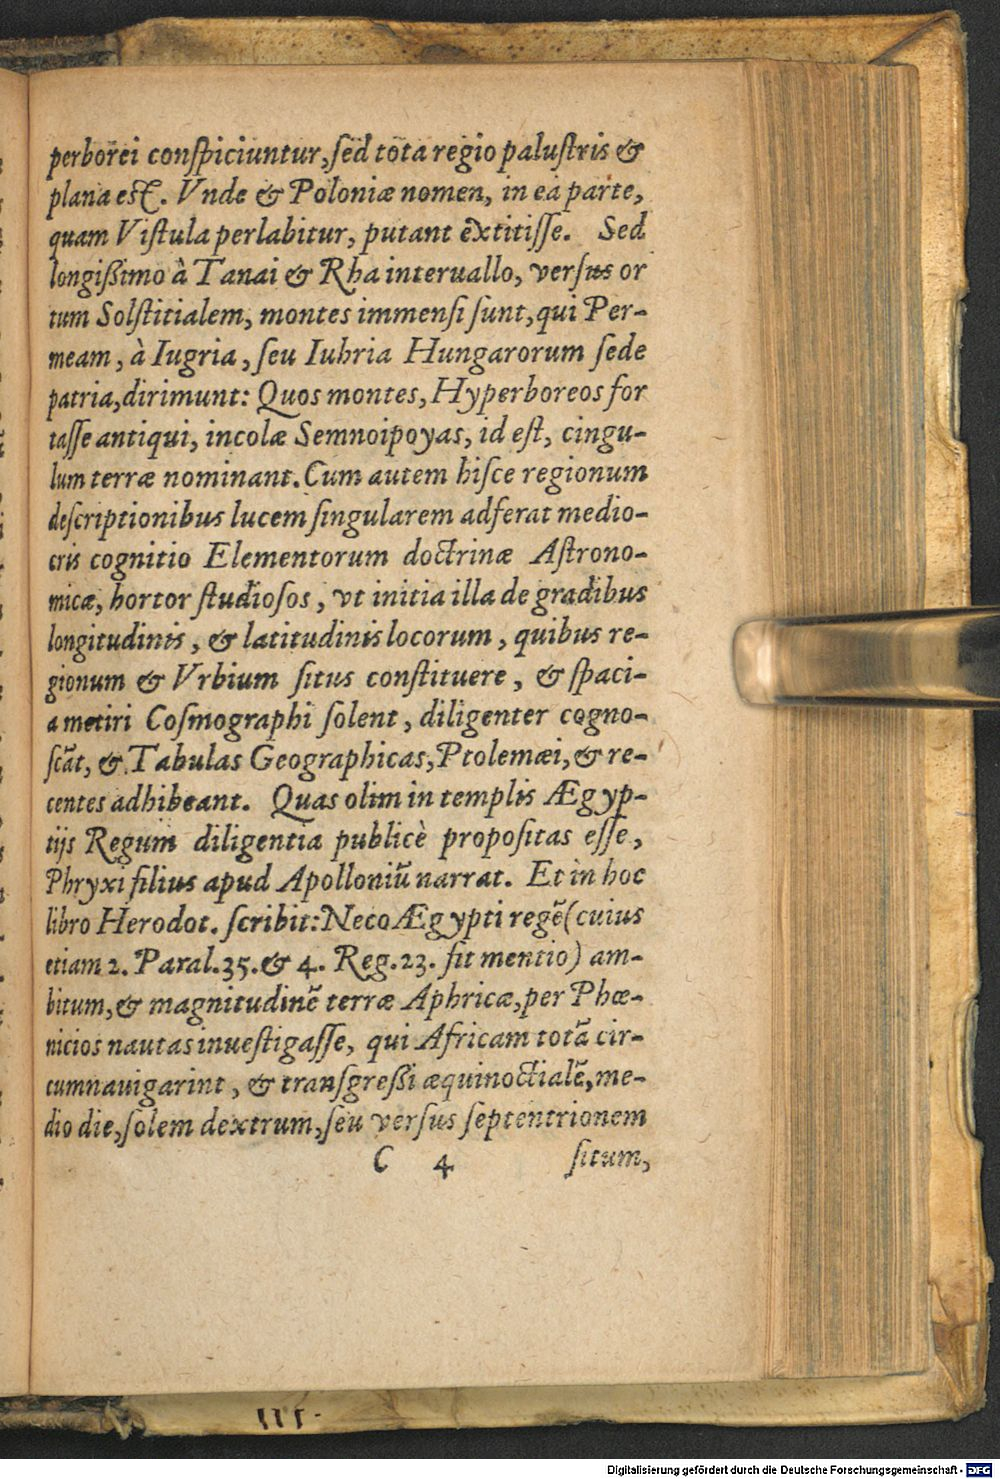 perborei conſpiciuntur, ſed tota regio paluſtris &
plana est. Vnde & Poloniæ nomen, in ea parte,
quam Viſtula perlabitur, putant extitiſſe. Sed
longißimo à Tanai & Rha interuallo, verſus or
tum Solſtitialem, montes immenſi ſunt, qui Per-
meam, à Iugria, ſeu Iuhria Hungarorum ſede
patria, dirimunt: Quos montes, Hyperboreos for
taſſe antiqui, incolæ Semnoipoyas, id eſt, cingu-
lum terræ nominant. Cum autem hiſce regionum
deſcriptionibus lucem ſingularem adferat medio-
cris cognitio Elementorum doctrinæ Aſtrono-
micæ, hortor ſtudioſos, vt initia illa de gradibus
longitudinis, & latitudinis locorum, quibus re-
gionum & Vrbium ſitus conſtituere, & ſpaci-
a metiri Coſmographi ſolent, diligenter cogno-
ſcāt, & Tabulas Geographicas, Ptolemæi, & re-
centes adhibeant. Quas olim in templis Ægyp-
tijs Regum diligentia publicè propoſitas eſſe,
Phryxi filius apud Apolloniū narrat. Et in hoc
libro Herodot. ſcribit: Neco Ægypti regē (cuius
etiam 2. Paral. 35. & 4. Reg. 23. fit mentio) am-
bitum, & magnitudinē terræ Aphricæ, per Phœ-
nicios nautas inueſtigaſſe, qui Africam totā cir-
cumnauigarint, & tranſgreßi æquinoctialē, me-
dio die, ſolem dextrum, ſeu verſus ſeptentrionem
C 4 ſitum,
III.
Digitalisierung gefördert durch die Deutsche Forschungsgemeinschaft - DFG